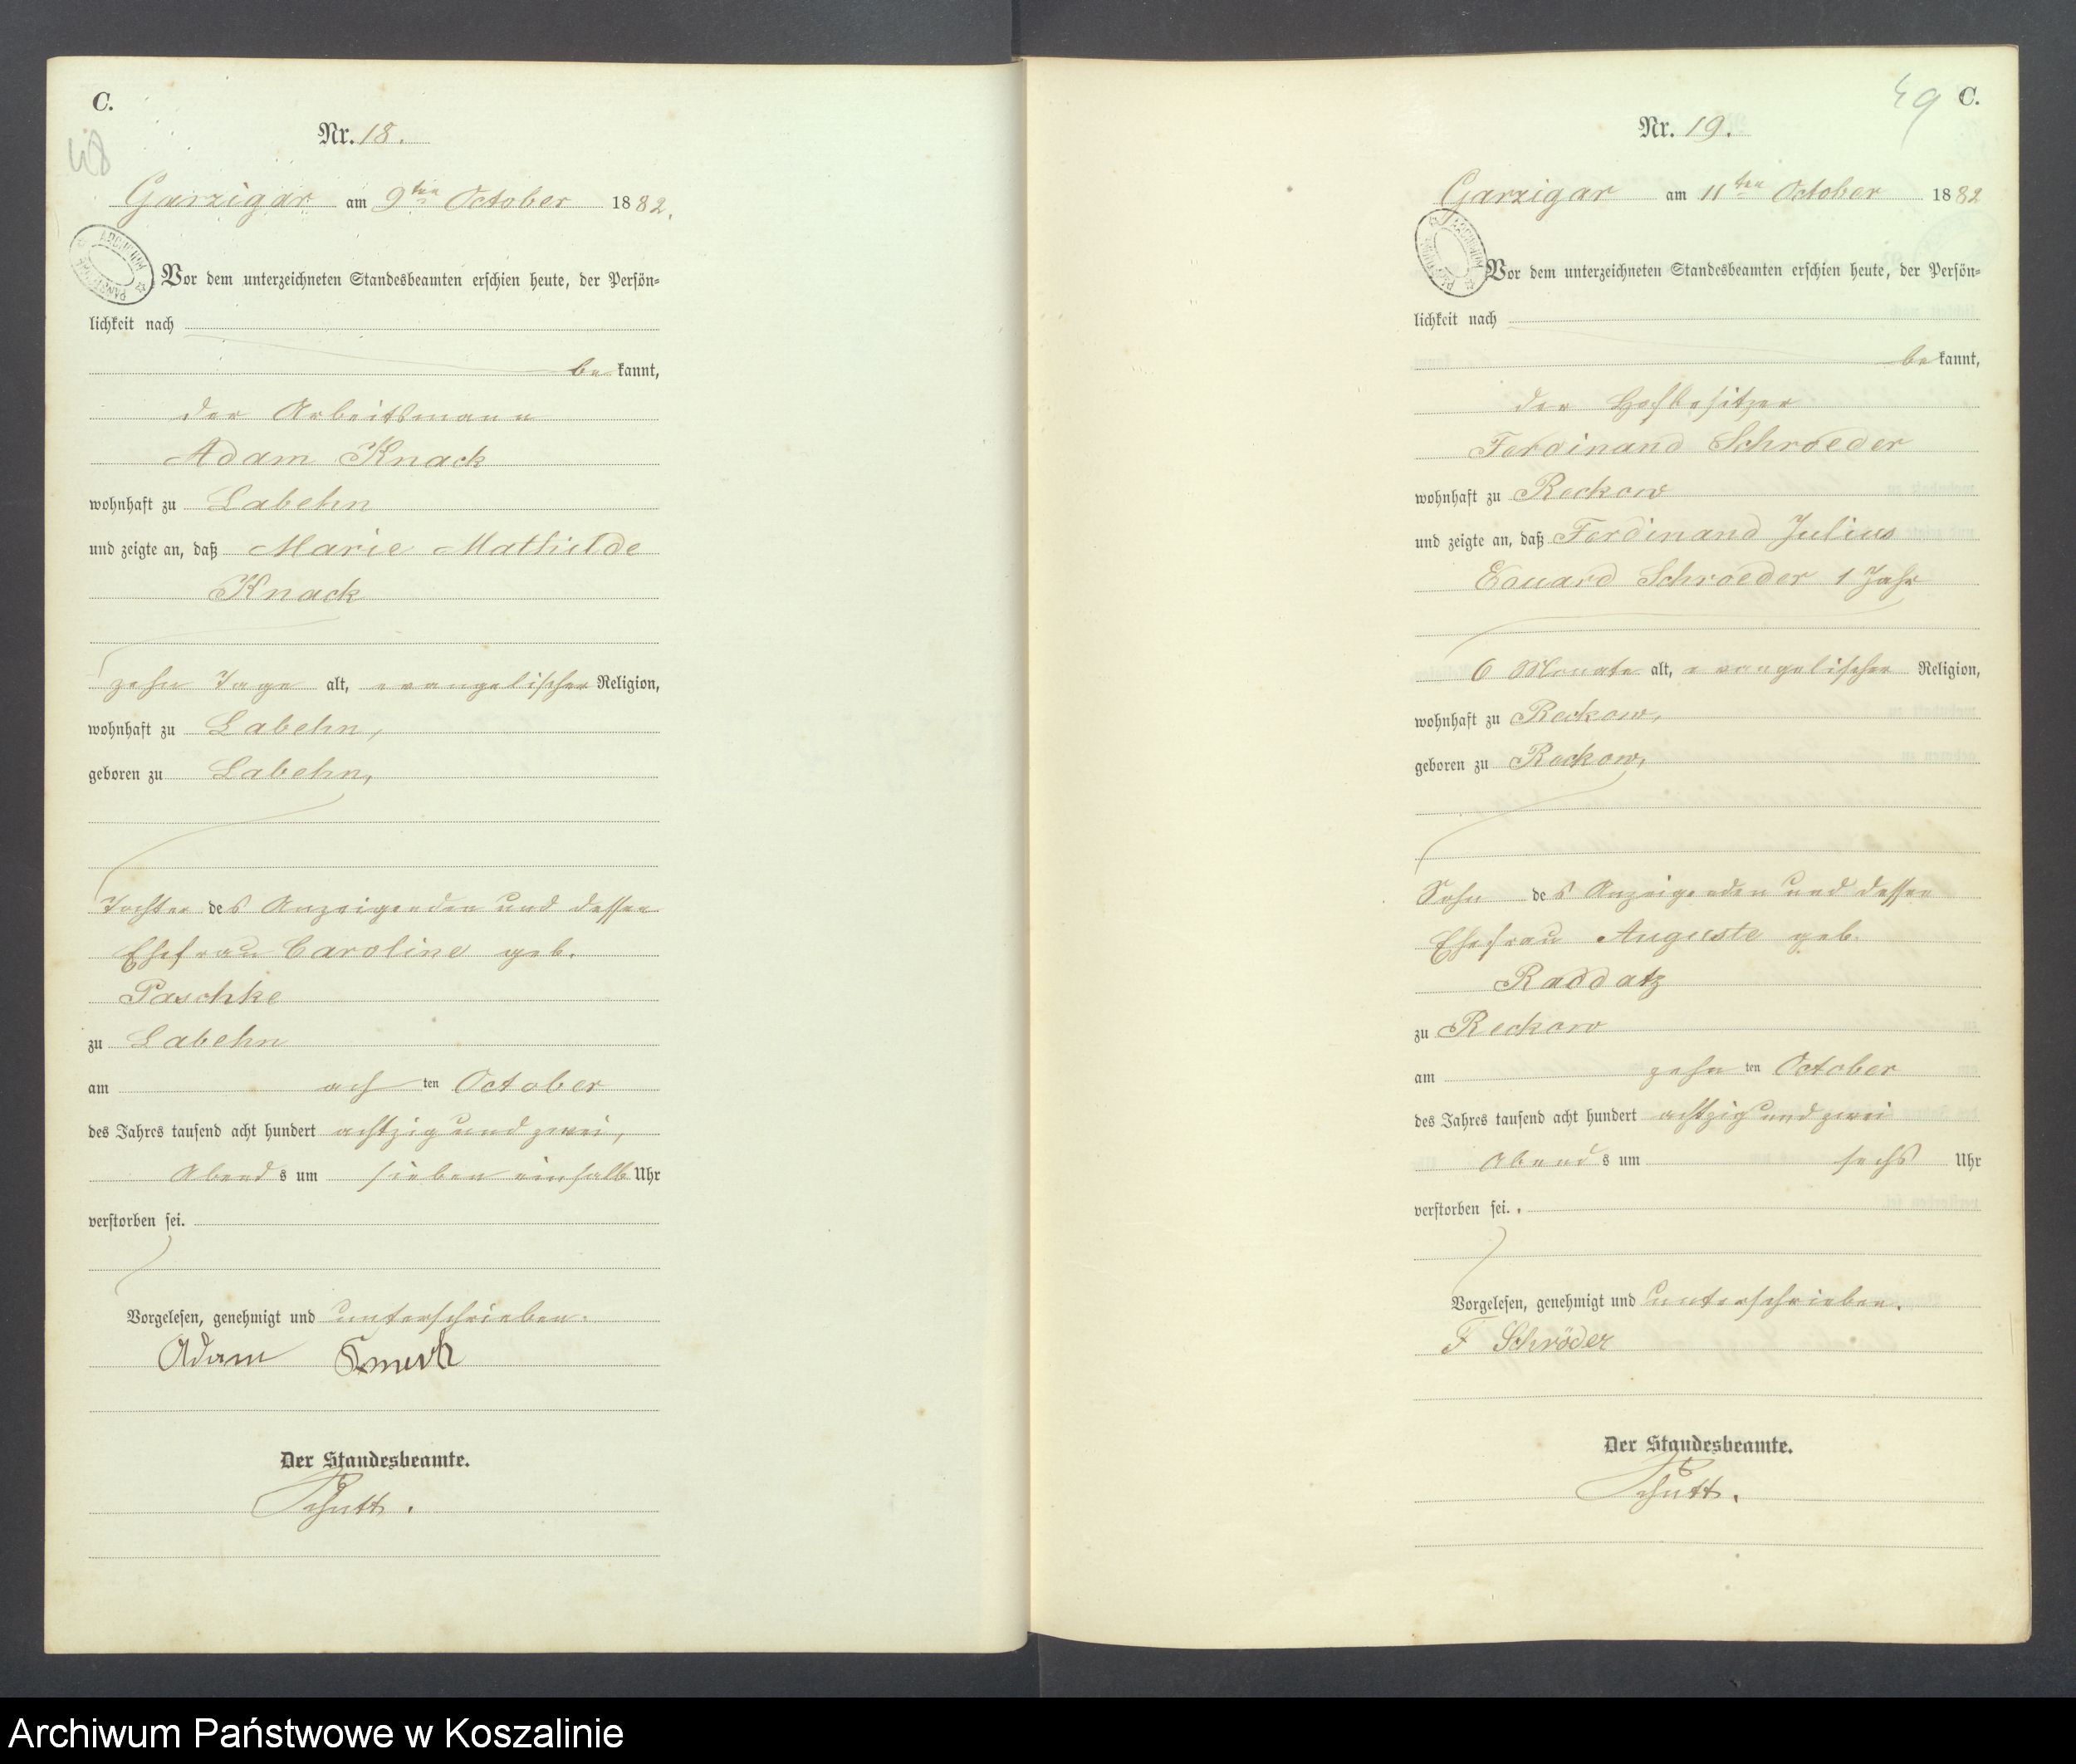 C.
48
Nr. 18.
Garzigar am 9ten October 1882.
Vor dem unterzeichneten Standesbeamten erschien heute, der Persön-
lichkeit nach
be kannt,
der Arbeitsmann
Adam Knack
wohnhaft zu Labehn
und zeigte an, daß Marie Mathilde
Knack
zehn Tage alt, evangelischer Religion,
wohnhaft zu Labehn,
geboren zu Labehn,
Tochter des Anzeigenden und dessen
Ehefrau Caroline geb.
Paschke
zu Labehn
am ach ten October
des Jahres tausend acht hundert achtzig und zwei,
Abend s um sieben einhalb Uhr
verstorben sei.
Vorgelesen, genehmigt und unterschrieben.
Adam Knack
Der Standesbeamte.
Schutt.
49 C.
Nr. 19.
Garzigar am 11ten October 1882
Vor dem unterzeichneten Standesbeamten erschien heute, der Persön-
lichkeit nach
be kannt,
der Hofbesitzer
Ferdinand Schroeder
wohnhaft zu Reckow
und zeigte an, daß Ferdinand Julius
Eduard Schroeder 1 Jahr
6 Monate alt, evangelischer Religion,
wohnhaft zu Reckow,
geboren zu Reckow,
Sohn des Anzeigenden und dessen
Ehefrau Auguste geb.
Raddatz
zu Reckow
am zehn ten October
des Jahres tausend acht hundert achtzig und zwei
Abend s um sechs Uhr
verstorben sei.
Vorgelesen, genehmigt und unterschrieben.
F Schröder
Der Standesbeamte.
Schutt.
Archiwum Państwowe w Koszalinie